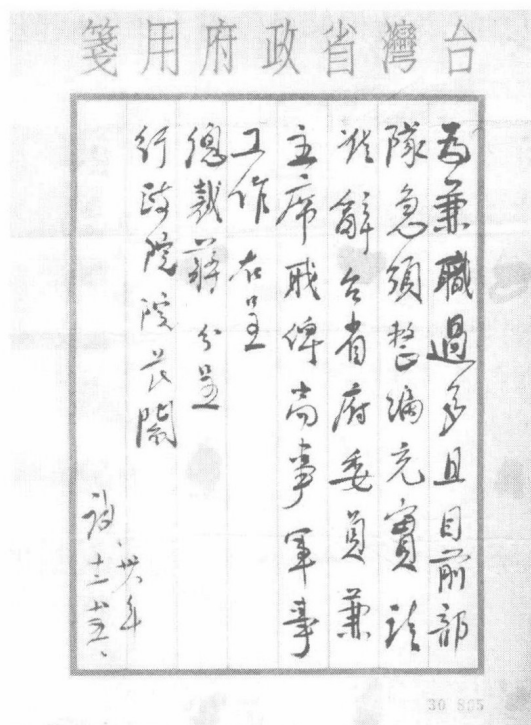 台灣省政府用箋
為兼職過多且目前部
隊急須整編充實請
准辭台省府委員兼
主席職俾尚事軍事
工作 右呈
總裁蔣 分呈
行政院院長閻
卅八年
十二、十五、
30 895